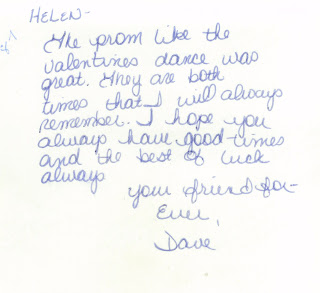 HELEN-
The prom like the
valentines dance was
great. They are both
times that I will always
remember. I hope you
always have good times
and the best of luck
always
your friend for-
Ever,
Dave